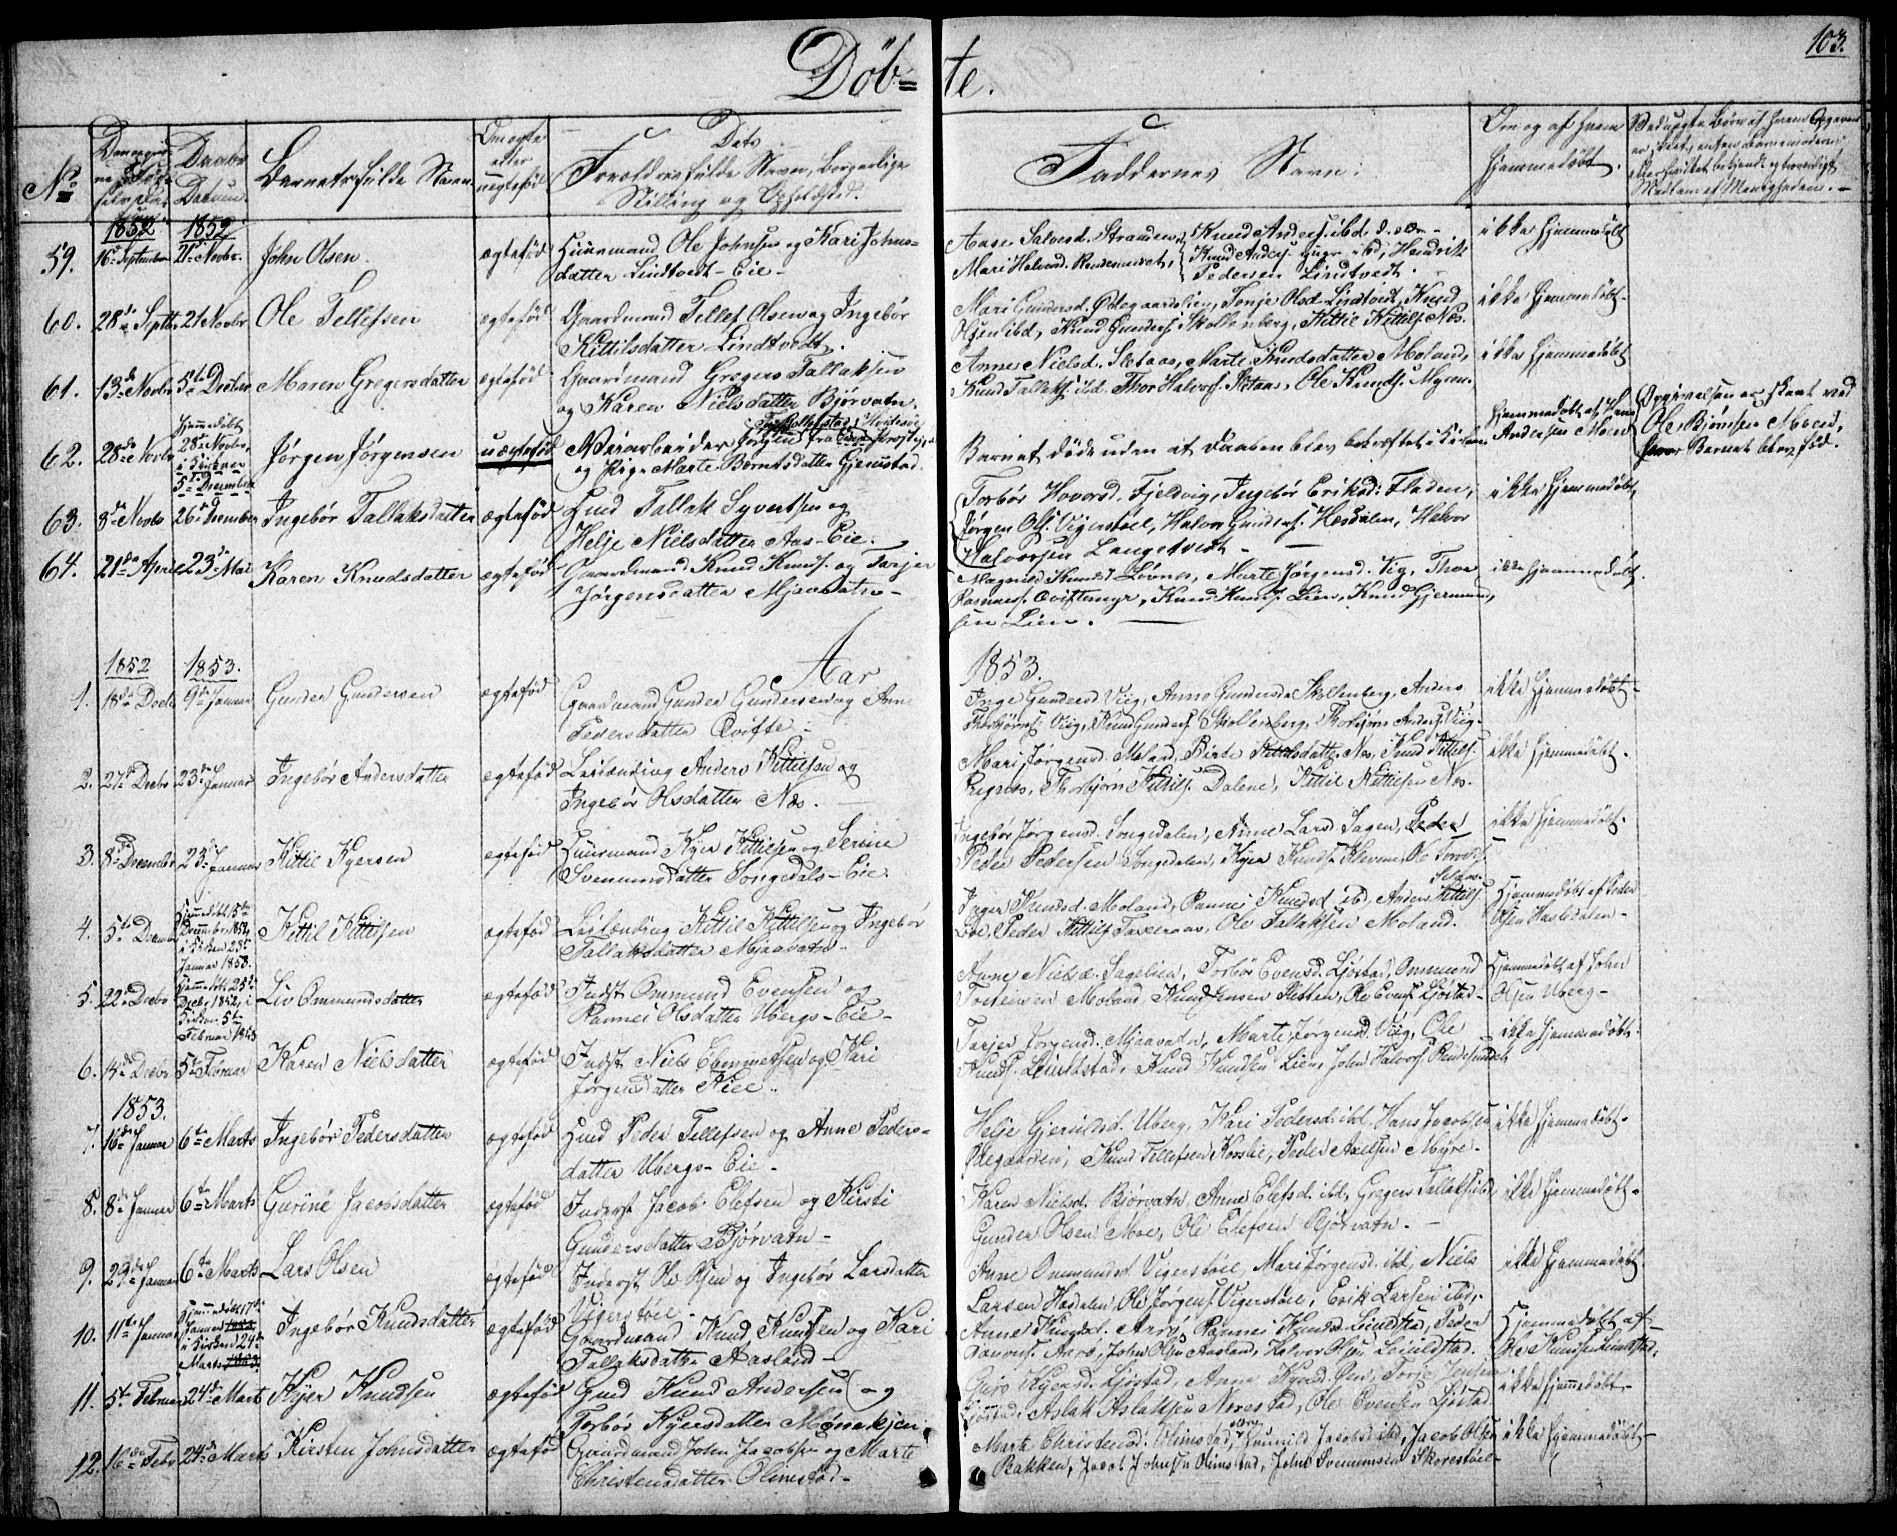 103.
Døbte.
No
Barnets fulde Navn
Daabs Datum.
Om ægte eller uægtefød
Dets Forældres fulde Navn, borgerlige
Stilling og Opholdsted.
Faddernes Navn.
Om og af hvem
hjemmedøbt.
1852 1852
59. 16de September 21de Novbr. John Olsen. ægtefød Huusmand Ole Johnsen og Kari Johns-
datter Lindtvedt-Eie-
Aase Salvesd. Stranden, Knud Anders. ibd.
Mari Halvord. Rendesundet, Hendrik
Pedersen Lindtvedt.
ikke hjemmedøbt
60. 28de Septb. 21 Novbr Ole Tellefsen ægtefød Gaardmand Tellef Olsen og Ingebør
Kittilsdatter Lindtvedt.
Mari Gundersd. Ødegaardslien, Tonje Olsd. Lindtvedt, Knud
Olsen ibd, Knud Gunders. Skollenberg, Kittil Kittils. Næs.
ikke hjemmedøbt-
61. 13de Novbr. 5te Decbr. Maren Gregersdatter ægtefød Gaardmand Gregers Tallaksen
og Karen Nielsdatter Bjørvatn.
Anne Nielsd. Sletaas, Marte Knudsdatter Moland,
Knud Tallaks. ibd. Thor Halvors. Sletaas, Ole Knuds. Myren.
ikke hjemmedøbt
62. 28de Novbr Hjemmedøbt 28de Novbr. i Kirken 5te December Jørgen Jørgensen uægtefød Veiarbeider Jørgen fra
og Pige Marte Berntsdatter Gjerustad.
Barnet døde uden at Daaben blev bekræftet i Kirken.
Hjemmedøbt af Hans
Andersen Moen
Opgivelsen er skeet ved
Ole Bjørnsen Moen,
hvor Barnet blev fød.
63. 8de Novbr 26de December Ingebør Tallaksdatter ægtefød Huusmd Tallak Syvertsen og
Helje Nielsdatter Aas-Eie.
Torbør Hovorsd. Fjeldvig, Ingebør Eriksd. Fladen,
Jørgen Ols. Vigerstøel, Halvor Gunders. Hesdalen, Halvor
Halvorsen Langetvedt -
ikke hjemmedøbt
64. 21de April 23de Mai Karen Knudsdatter ægtefød Gaardmand Knud Knuds. og Tarjer
Jørgensdatter Mjaavatn-
Magnild Knudsd. Løvnes, Marte Jørgensd. Vig, Thor
Rasmus. Qviftemyr, Knud Knuds. Lien, Knud Gjermund-
sen Lien.
ikke hjemmedøbt.
1852 1853. Aar 1853.
1. 18de Decbr 9de Januar Gunder Gundersen ægtefød Gaardmand Gunder Gundersen og Anne
Pedersdatter Qvifte-
Inge Gundersd. Viig, Anne Gundersd. Skollenberg, Anders
Thorbjørns. Viig, Knud Gunders. Skollenberg, Thorbjørn Anders. Viig-
ikke hjemmedøbt-
2. 27de Decbr 23de Januar Ingebør Andersdatter ægtefød Leilænding Anders Kittilsen og
Ingebør Olsdatter Næs.
Mari Jørgensd. Moland, Birte Kittilsdatter Næs, Knud Kittils.
Thorbjørn Kittils. Dalene, Kittil Kittilsen Næs.
ikke hjemmedøbt.
3. 8de December 23de Januar Kittil Kyersen ægtefød Huusmand Kyer Kittilsen og Serine
Svenumsdatter Songedals-Eie.
Ingebør Jørgensd. Songedalen, Anne Larsd. Sagen, Peder
Peder Pedersen Songedalen, Kyer Knuds. Kleven, Ole
ikke hjemmedøbt.
4. 5te December Hjemmedøbt 15de December 1852, i Kirken 23de Januar 1853. Kittil Kittilsen ægtefød Leilænding Kittil Kittilsen og Ingebør
Tallaksdatter Mjaavatn-
Inger Knudsd. Moland, Rannei Knudsd ibd, Anders Kittils.
Boe, Peder Kittils. Ole Tallaksen Moland.
Hjemmedøbt af Peder
Olsen Hasledalen-
5. 22de Decbr Hjemmedøbt 25de Decbr. 1852, i Kirken 5te Februar 1853 Liv Ommundsdatter ægtefød Inderst Ommund Evensen og
Rannei Olsdatter Ubergs-Eie-
Anne Nielsd. Sagelien, Torbør Evensd. Ljøstad, Ommund
Torkelsen Moland, Knud Jensen Sletten, Ole Evens. Ljøstad-
Hjemmedøbt af John
Olsen Uberg-
6. 14de Decbr 5te Februar Karen Nielsdatter ægtefød Inderst Niels Emmertsen og Kari
Jørgensdatter
Tarjer Jørgensd. Mjaavatn, Marte Jørgensd. Viig, Ole
Knuds. Leiulstad, Knud Knudsen Lien, John Halvors. Rendesundet
ikke hjemmedøbt.
1853.
7. 16de Januar 6te Marts Ingebør Pedersdatter ægtefød Huusmd Peder Tellefsen og Anne Peders-
datter Ubergs-Eie-
Helje Gjerulsd. Uberg, Kari Pedersd. ibd, Hans Jacobsen
Ødegaarden, Knud Tellefsen Korslie, Peder Axelsen Myre-
ikke hjemmedøbt-
8. 8de Januar 6te Marts Gurine Jacobsdatter ægtefød Inderst Jacob Elefsen og Kirsti
Gundersdatter Bjørvatn-
Karen Nielsd. Bjørvatn, Anne Elefsd. ibd, Gregers Tallaks. ibd,
Gunder Olsen Moe, Ole Elefsen Bjørvatn.-
ikke hjemmedøbt-
9. 29de Januar 6te Marts Lars Olsen ægtefød Inderst Ole Olsen og Ingebør Larsdatter
Vigerstøel-
Anne Ommundsd Vigerstøel, Mari Jørgensd. ibd, Niels
Larsen Hasdalen, Ole Jørgens. Vigerstøel, Erik Larsen ibd,-
ikke hjemmedøbt.
10. 11te Januar Hjemmedøbt 17de Januar 1853, i Kirken 24de Marts 1853. Ingebør Knudsdatter ægtefød Gaardmand Knud Knudsen og Kari
Tallaksdatter Aasland-
Anne Knudsd. Aarø, Rannei Knudsd. Leiulstad, Peder
Aarø, John Olsen Aasland, Halvor Olsen Leiulstad.
Hjemmedøbt af-
Ole Knudsen Leiulstad.
11. 5te Februar 24de Marts Kyer Knudsen ægtefød Huusmd Knud Andersen og
Torbør Kyersdatter
Guro Kyersd. Ljøstad, Anne Kyersd. Øen, Torje Jensen
Ljøstad, Aslak Aslaksen Norestad, Ole Evensen Ljøstad
ikke hjemmedøbt-
12. 16de Febr 24de Marts Kirsten Johnsdatter ægtefød Gaardmand John Jacobsen og Marte
Christensdatter Olimstad-
Marte Christensd. Olimstad, Gunnild Jacobsd. ibd, Jacob Olsen
Bakken, Jacob Johnsen Olimstad, John Svenumsen Skorestøel-
ikke hjemmedøbt-